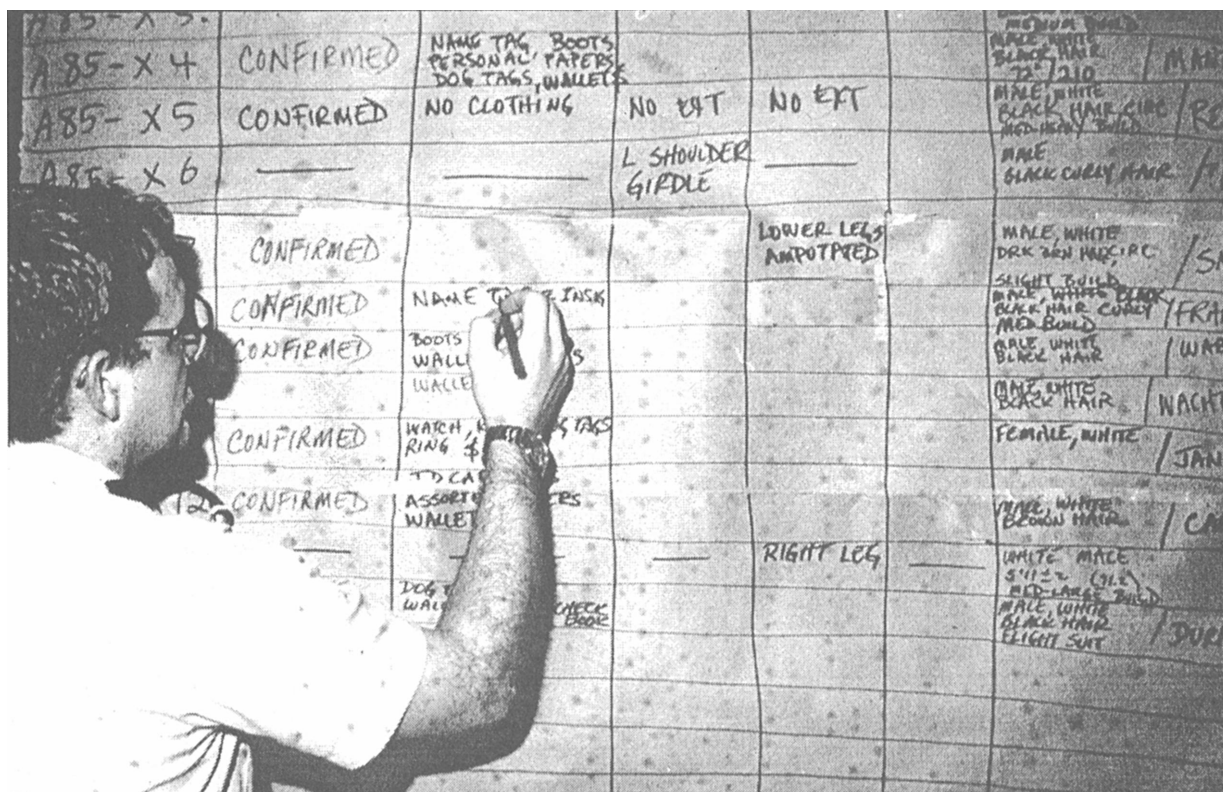 A85-X 3.
MEDIUM BUILD
A85-X 4
CONFIRMED
NAME TAG, BOOTS
PERSONAL PAPERS
DOG TAGS, WALLET$
MALE, WHITE
BLACK HAIR
72" / 210
/ MAR
A85-X 5
CONFIRMED
NO CLOTHING
NO EXT
NO EXT
MALE, WHITE
BLACK HAIR, CIRC
MED-HEAVY BUILD
/ RE
A85-X 6
L SHOULDER
GIRDLE
MALE
BLACK CURLY HAIR
CONFIRMED
LOWER LEGS
AMPOTATED
MALE, WHITE
DRK BRN HAIR, CIRC
SLIGHT BUILD
CONFIRMED
NAME INSIG
MALE, WHITE BLACK
BLACK HAIR CURLY
MED BUILD
/ FRA
CONFIRMED
BOOTS
WALL S
MALE, WHITE
BLACK HAIR
/ WAR
WALLE
MALE, WHITE
BLACK HAIR
/ WACHT
CONFIRMED
WATCH, TAGS
RING $
FEMALE, WHITE
/ JAN
12
CONFIRMED
ID CA
ASSORT ERS
WALLET
MALE, WHITE
BROWN HAIR
/ CA
RIGHT LEG
WHITE MALE
5'11"±2 (71.2)
MED-LARGE BUILD
DOG
WALL CHECK
BOOK
MALE, WHITE
BLACK HAIR
FLIGHT SUIT
/ DUR